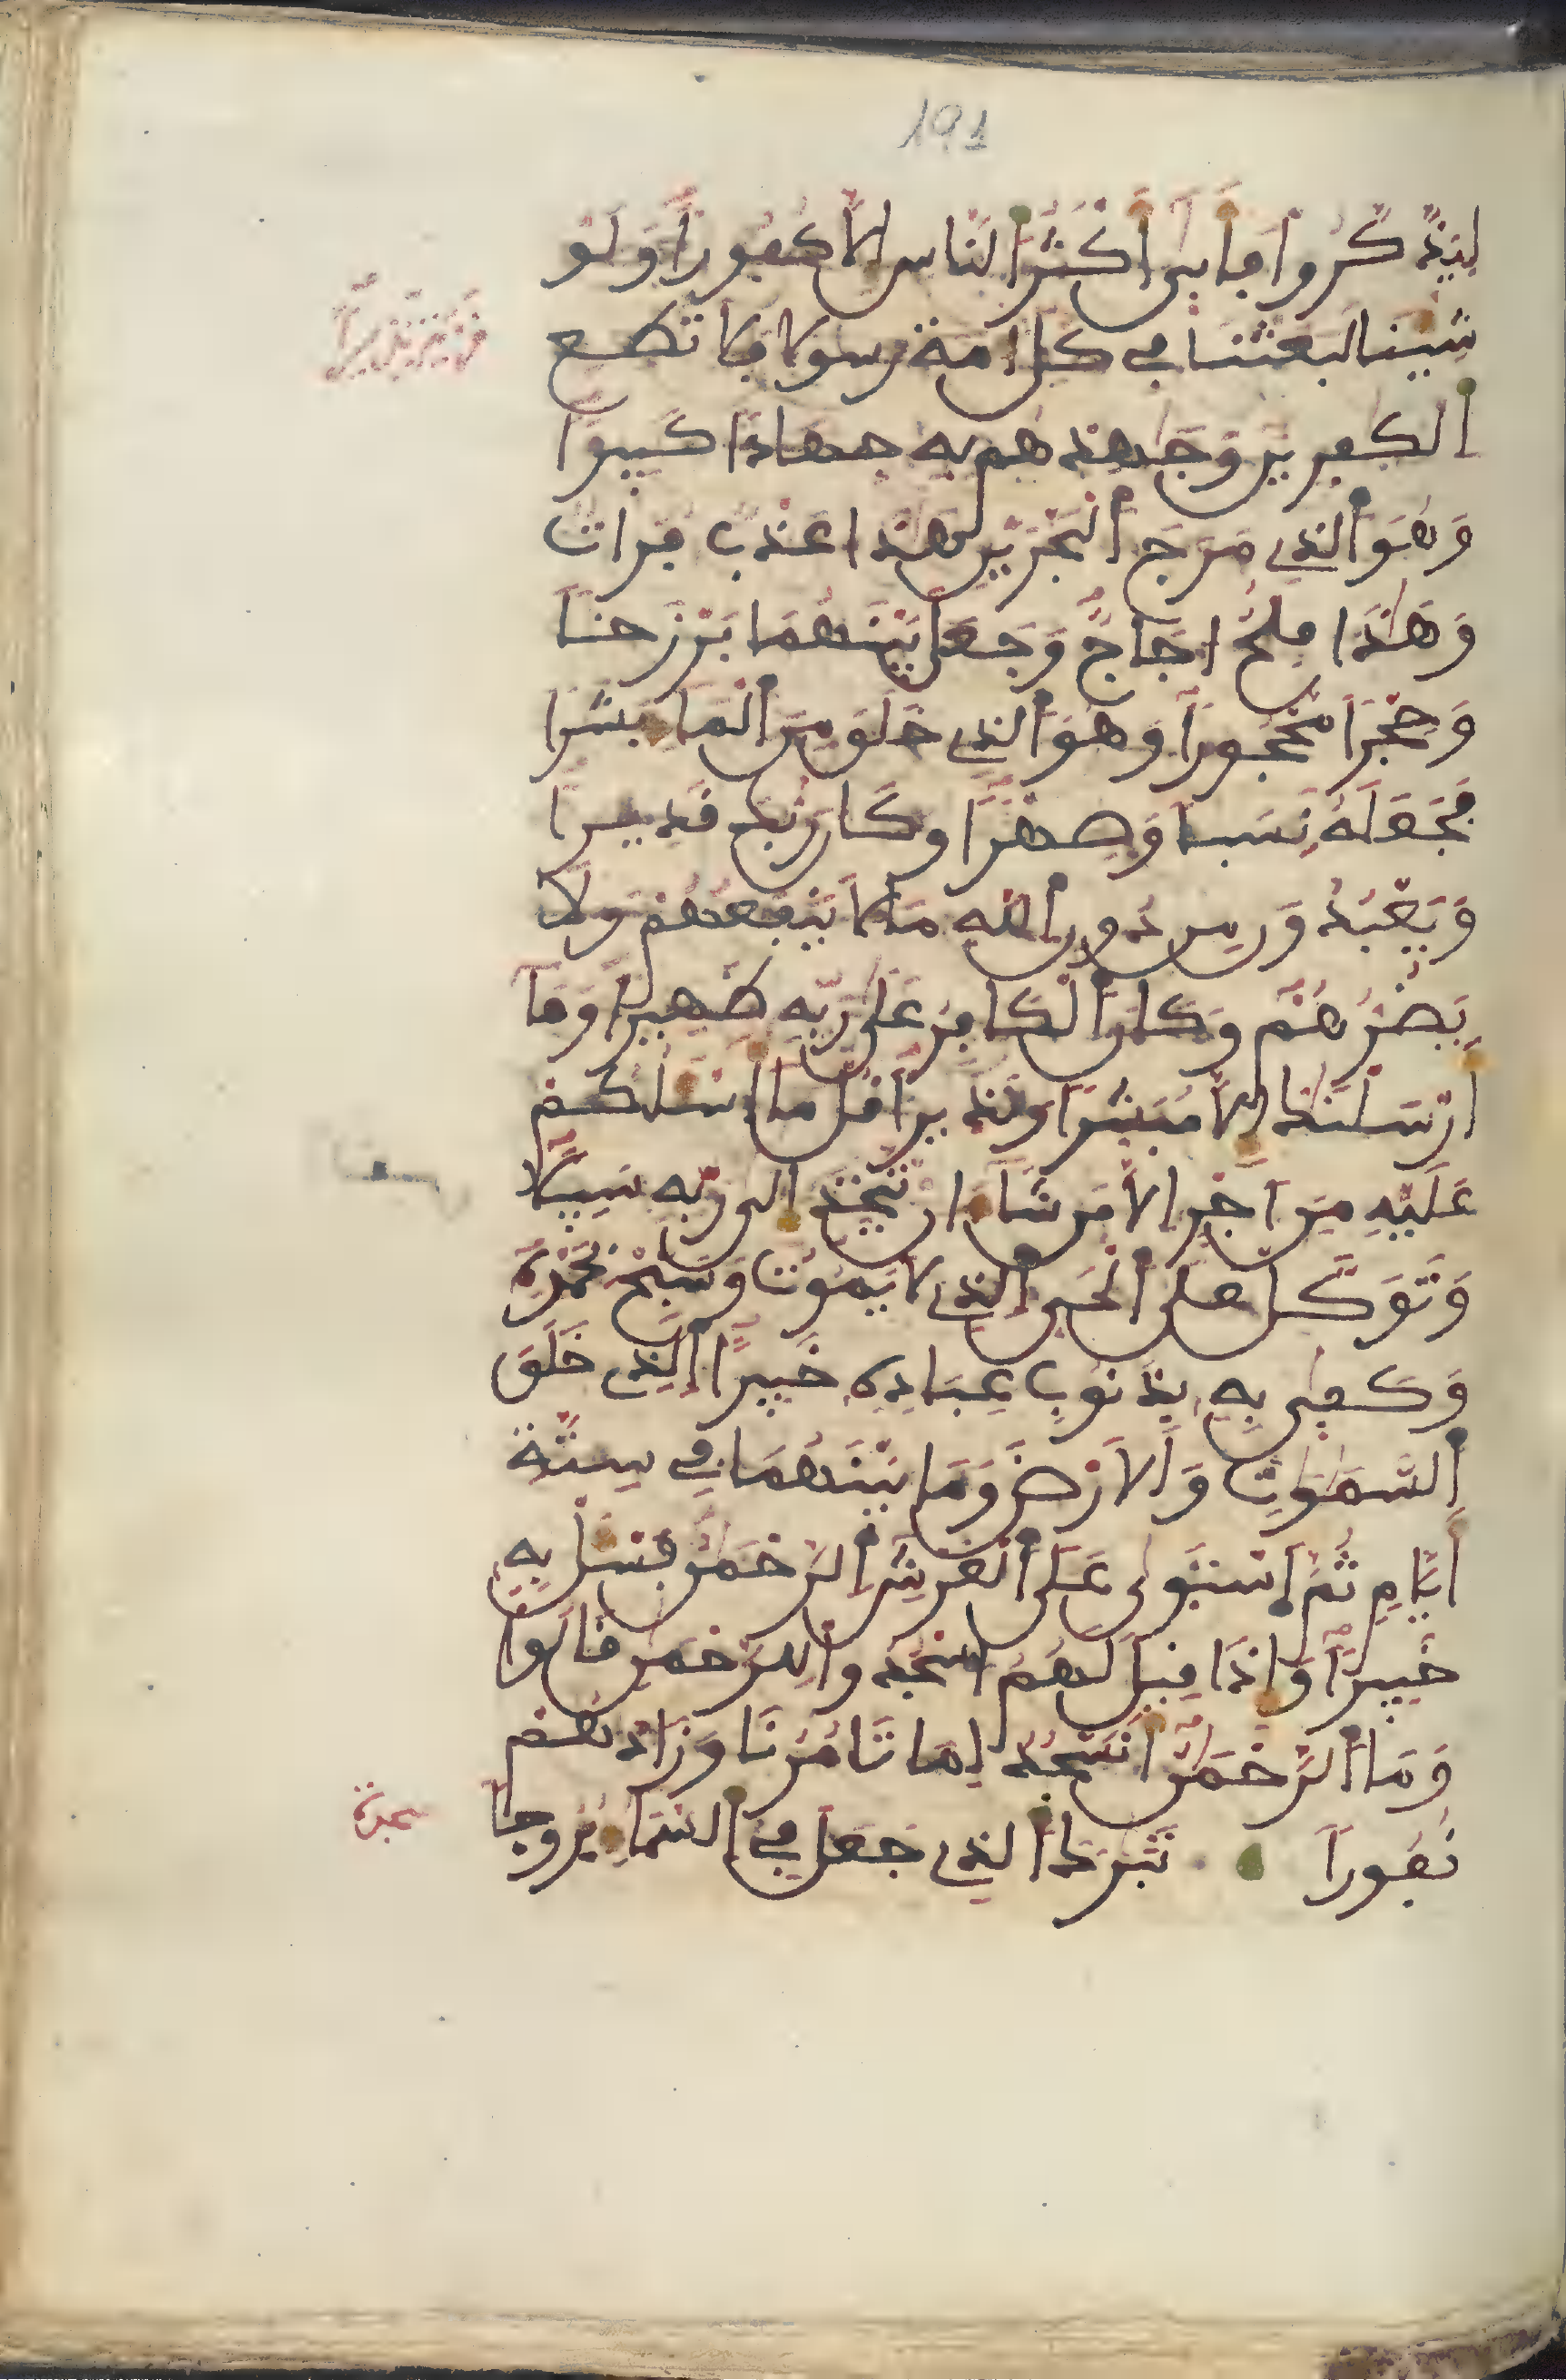 191
لِيَذَّكَّرُوا فَأَبَىٰ أَكْثَرُ النَّاسِ إِلَّا كُفُورًا وَلَوْ
شِئْنَا لَبَعَثْنَا فِي كُلِّ أُمَّةٍ رسولا فلا تطع
قَرْيَةٍ نَذِيرًا
الكٰفرين وَجَٰهِدْهُم بِهِ جِهَادًا كَبِيرًا
وَهُوَ الَّذِي مَرَجَ الْبَحْرَيْنِ هَٰذَا عَذْبٌ فُرَاتٌ
وَهَٰذَا مِلْحٌ أُجَاجٌ وَجَعَلَ بَيْنَهُمَا بَرْزَخًا
وَحِجْرًا مَّحْجُورًا وَهُوَ الَّذِي خَلَقَ مِنَ الْمَاءِ بَشَرًا
فَجَعَلَهُ نَسَبًا وَصِهْرًا وَكَانَ رَبُّكَ قَدِيرًا
وَيَعْبُدُونَ مِن دُونِ اللهِ مَا لَا يَنفَعُهُمْ وَلَا
يَضُرُّهُمْ وَكَانَ الْكَافِرُ عَلَىٰ رَبِّهِ ظَهِيرًا وَمَا
أَرْسَلْنَٰكَ إِلَّا مُبَشِّرًا وَنَذِيرًا قُلْ مَا أَسْـَٔلُكُمْ
عَلَيْهِ مِنْ أَجْرٍ إِلَّا مَن شَاءَ أَن يَتَّخِذَ إِلَىٰ رَبِّهِ سَبِيلًا
وَتَوَكَّلْ عَلَى الْحَيِّ الَّذِي لَا يَمُوتُ وَسَبِّحْ بِحَمْدِهِ
وَكَفَىٰ بِهِ بِذُنُوبِ عِبَادِهِ خَبِيرًا الَّذِي خَلَقَ
السَّمَٰوَٰتِ وَالْأَرْضَ وَمَا بَيْنَهُمَا فِي سِتَّةِ
أَيَّامٍ ثُمَّ اسْتَوَىٰ عَلَى الْعَرْشِ الرَّحْمَٰنُ فَسْـَٔلْ بِهِ
خَبِيرًا وَإِذَا قِيلَ لَهُمُ اسْجُدُوا لِلرَّحْمَٰنِ قَالُوا
وَمَا الرَّحْمَٰنُ أَنَسْجُدُ لِمَا تَأْمُرُنَا وَزَادَهُمْ
نُفُورًا تَبَٰرَكَ الَّذِي جَعَلَ فِي السَّمَاءِ بُرُوجًا
سجدة